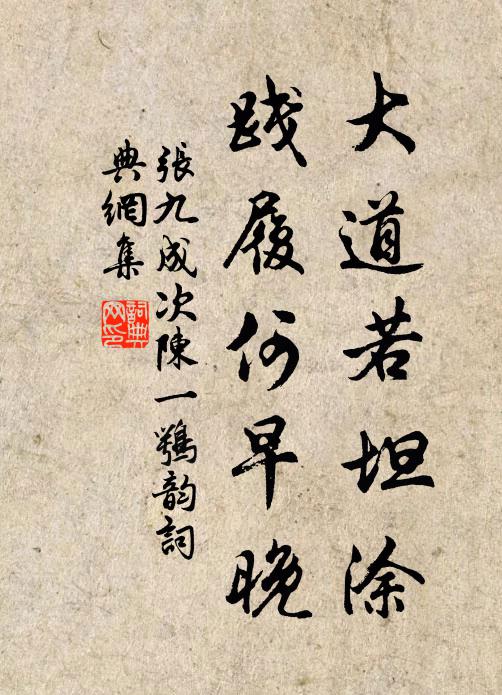 大道若坦涂
踐履何早晚
張九成次陳一鶚韵詞
典網集
詞典网印